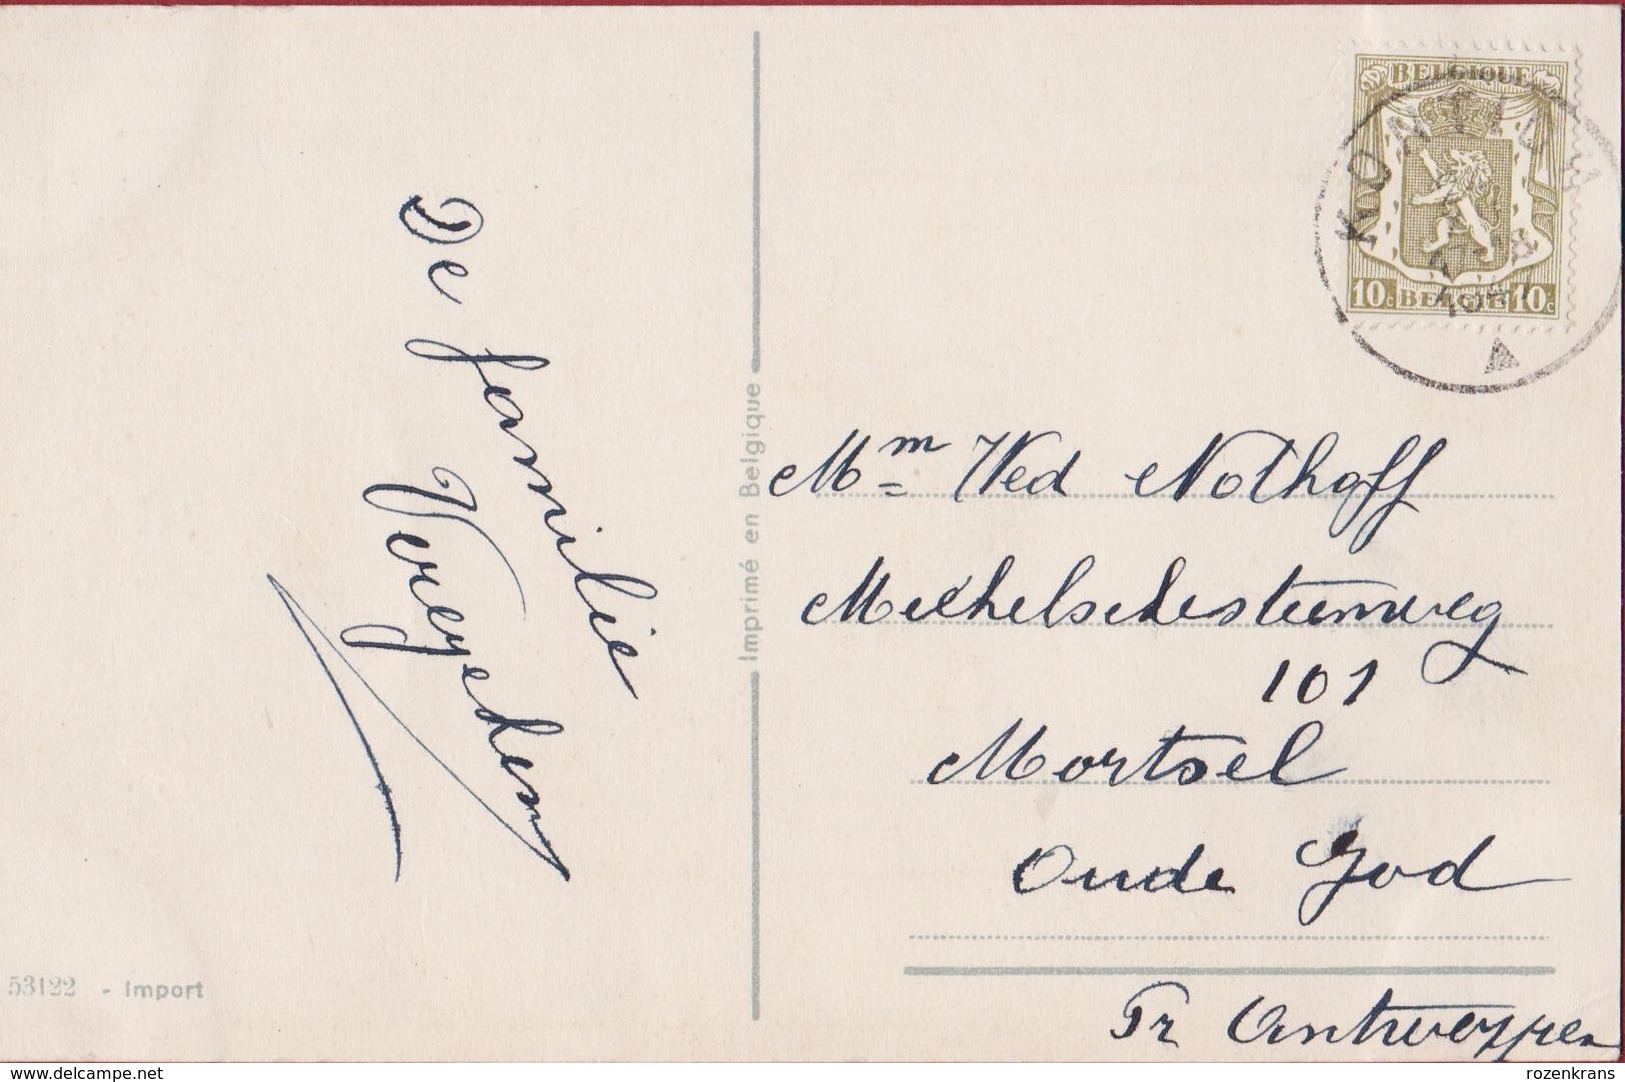 BELGIQUE
KONTICH
10c BELGIË 10c
De familie
Imprimé en Belgique
Mm Wed Nothoff
Mechelschesteenweg
101
Mortsel
Oude God
Pr Antwerpen
53122 - Import
www.delcampe.net
rozenkrans